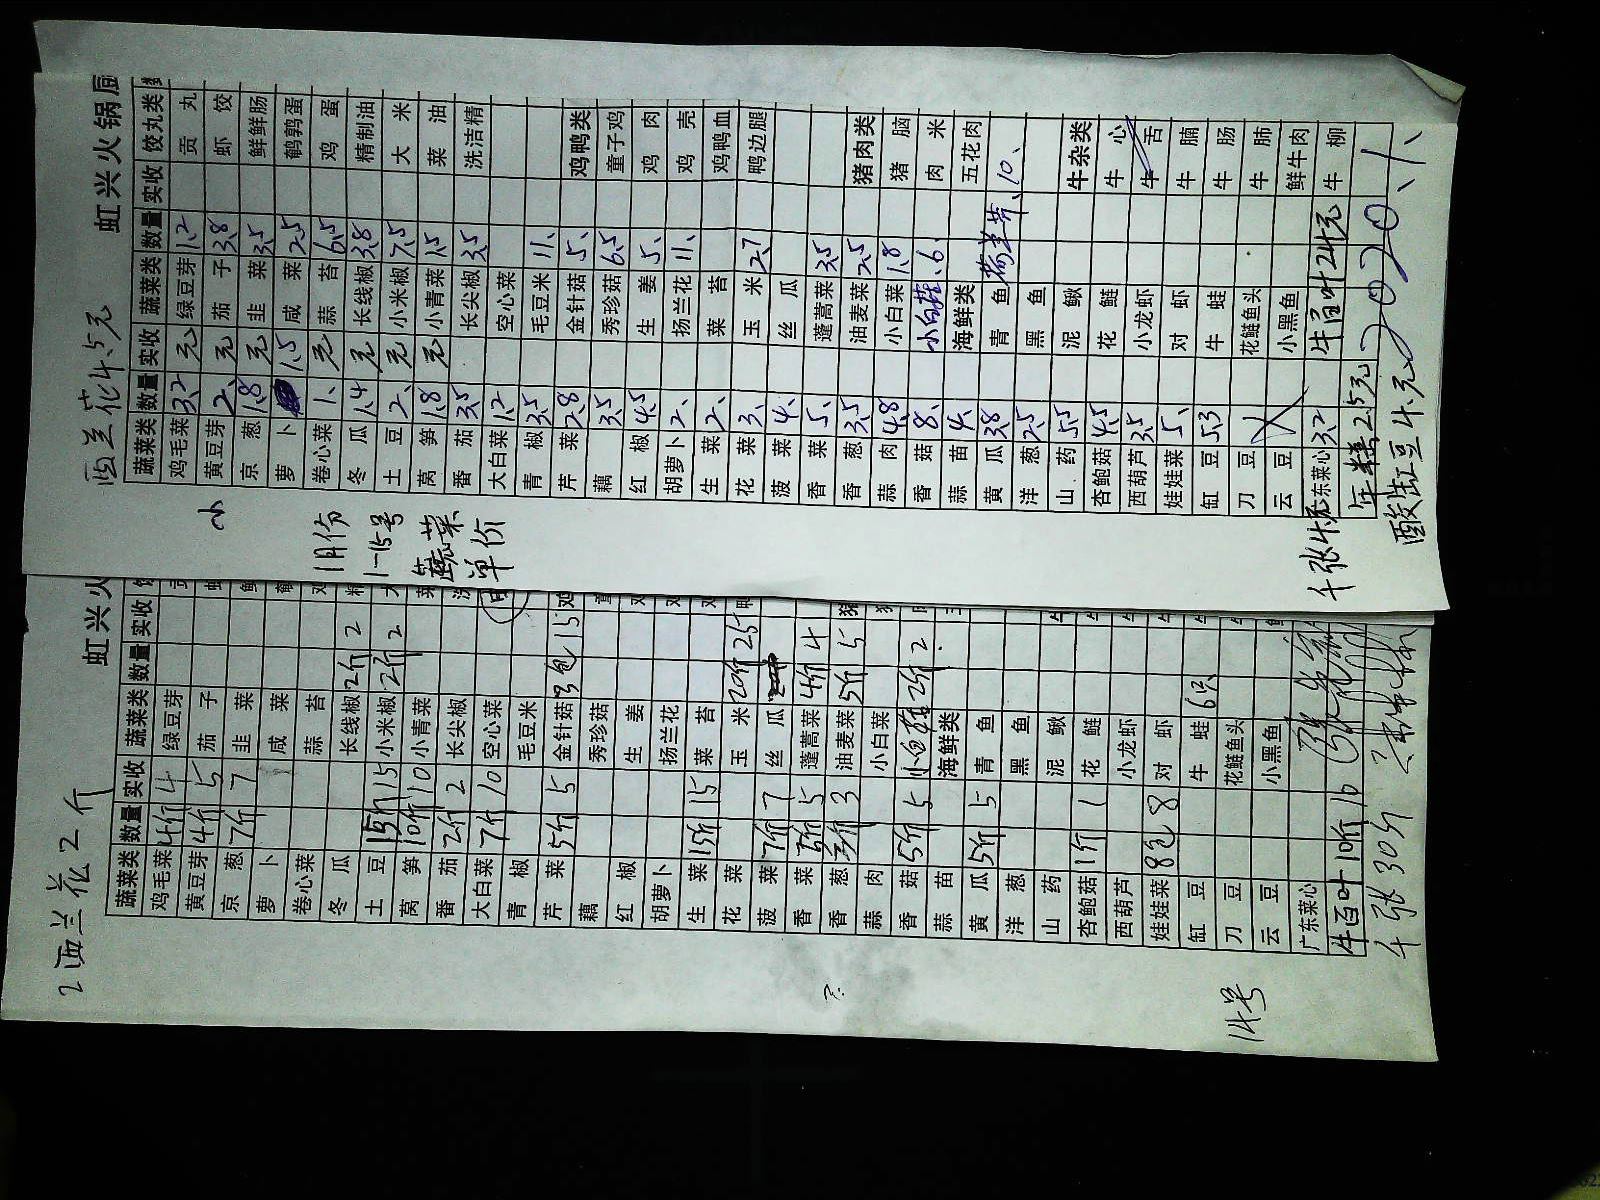 西兰花4.5元
虹兴火锅
蔬菜类 数量 实收 蔬菜类 数量 实收 饺丸类
鸡毛菜 3.2 元 绿豆芽 1.2 贡丸
黄豆芽 2、 元 茄子 3.8 虾饺
京葱 1.8 元 韭菜 3.5 鲜鲜肠
萝卜 1.5 咸菜 2.5 鹌鹑蛋
卷心菜 1、 元 蒜苔 6.5 鸡蛋
冬瓜 1.4 元 长线椒 3.8 精制油
土豆 2、 元 小米椒 7.5 大米
莴笋 1.8 元 小青菜 1.5 菜油
番茄 3.5 长尖椒 3.5 洗洁精
大白菜 1.2 空心菜
青椒 3.5 毛豆米 11、
芹菜 2.8 金针菇 5、 鸡鸭类
藕 3.5 秀珍菇 6.5 童子鸡
红椒 4.5 生姜 5、 鸡肉
胡萝卜 2、 扬兰花 11、 鸡壳
生菜 2、 菜苔 鸡鸭血
花菜 3、 玉米 2.7 鸭边腿
菠菜 4、 丝瓜
香菜 5、 蓬蒿菜 3.5
香葱 3.5 油麦菜 2.5 猪肉类
蒜肉 4.8 小白菜 1.8 猪脑
香菇 8、 小白菇 6、 肉米
蒜苗 4、 海鲜类 五花肉
黄瓜 3.8 青鱼 10、
洋葱 2.5 黑鱼
山药 5.5 泥鳅 牛杂类
杏鲍菇 4.5 花鲢 牛心
西葫芦 3.5 小龙虾 牛舌
娃娃菜 5、 对虾 牛腩
缸豆 5.3 牛蛙 牛肠
刀豆 花鲢鱼头 牛肺
云豆 小黑鱼 鲜牛肉
广东菜心 3.2 牛百叶24元 牛柳
年糕2.5元
酸缸豆4元
千张4元
2020.1、
1月份
1-15号
蔬菜
单价
2西兰花2斤
虹兴火
蔬菜类 数量 实收 蔬菜类 数量 实收
鸡毛菜 4斤 4 绿豆芽
黄豆芽 4斤 5 茄子
京葱 7斤 7 韭菜
萝卜 咸菜
卷心菜 蒜苔
冬瓜 长线椒 2斤 2
土豆 15斤 15 小米椒 2斤 2
莴笋 10斤 10 小青菜
番茄 2斤 2 长尖椒
大白菜 7斤 10 空心菜
青椒 毛豆米
芹菜 5斤 5 金针菇 3包 15
藕 秀珍菇
红椒 生姜
胡萝卜 扬兰花
生菜 15斤 15 菜苔
花菜 玉米 20斤 25
菠菜 7斤 7 丝瓜
香菜 5斤 5 蓬蒿菜 4斤 4
香葱 3斤 3 油麦菜 5斤 5
蒜肉 小白菜
香菇 5斤 5 小白菇 2斤 2
蒜苗 海鲜类
黄瓜 5斤 5 青鱼
洋葱 黑鱼
山药 泥鳅
杏鲍菇 1斤 1 花鲢
西葫芦 小龙虾
娃娃菜 8包 8 对虾
缸豆 牛蛙 6只
刀豆 花鲢鱼头
云豆 小黑鱼
广东菜心
牛百叶 10斤 10
千张 30斤
14号